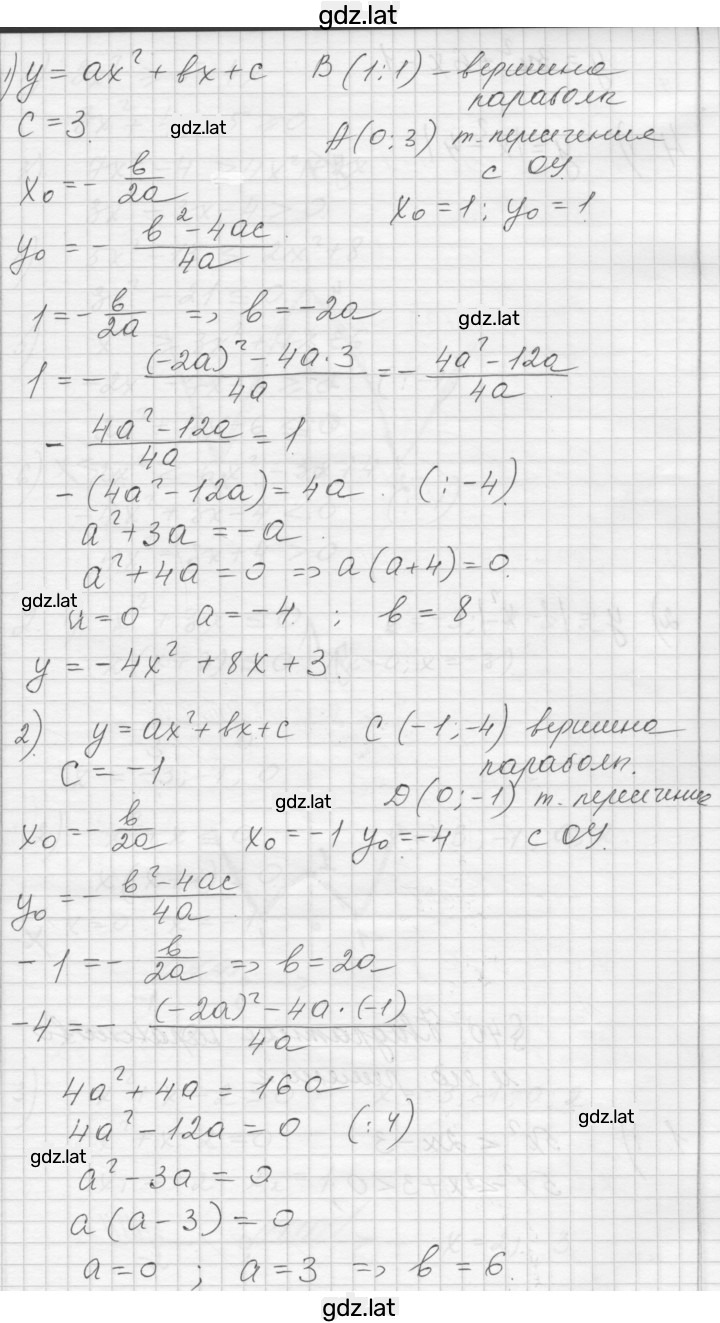 gdz.lat
1) y = ax² + bx + c   B (1; 1) – вершина
параболы
c = 3.   gdz.lat   A (0; 3) т. пересечения
с OY.
x₀ = - b/2a   x₀ = 1; y₀ = 1.
y₀ = - (b² - 4ac)/4a
1 = - b/2a => b = -2a   gdz.lat
1 = - ((-2a)² - 4a·3)/4a = - (4a² - 12a)/4a
- (4a² - 12a)/4a = 1.
- (4a² - 12a) = 4a.   (: -4)
a² + 3a = -a.
a² + 4a = 0 => a (a+4) = 0.
gdz.lat
a = 0   a = -4.   ;   b = 8
y = -4x² + 8x + 3.
2)   y = ax² + bx + c   C (-1; -4) вершина
параболы.
c = -1
gdz.lat   D (0; -1) т. пересечение
x₀ = - b/2a   x₀ = -1   y₀ = -4   с OY.
y₀ = - (b² - 4ac)/4a
-1 = - b/2a => b = 2a
-4 = - ((-2a)² - 4a·(-1))/4a
4a² + 4a = 16a
4a² - 12a = 0   (: 4)   gdz.lat
gdz.lat
a² - 3a = 0
a (a - 3) = 0
a = 0   ;   a = 3 => b = 6.
gdz.lat